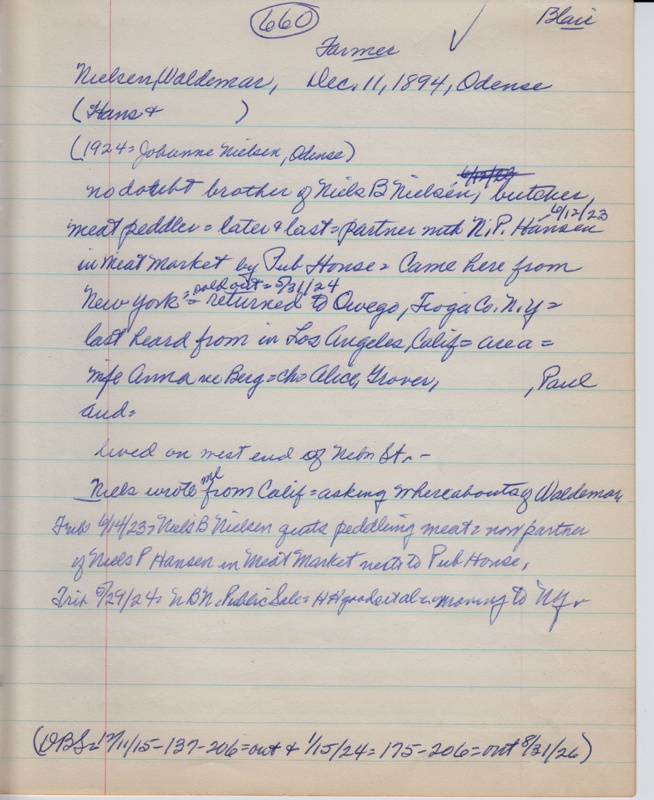 660
Blair
Farmer
Nielsen, Waldemar, Dec. 11, 1894, Odense
(Hans & )
(1924= Johanne Nielsen, Odense)
no doubt brother of Niels B Nielsen, butcher,
meat peddler = later & last = partner with N.P. Hansen 6/12/23
in Meat Market by Pub House = Came here from
New York = sold out = 5/31/24 = returned to Owego, Tioga Co. N.Y =
last heard from in Los Angeles, Calif = area =
wife Anna né Berg = ch = Alice, Grover, , Paul
and =
lived on west end of Nebr St. -
Niels wrote me from Calif = asking whereabouts of Waldemar
6/14/23 = Niels B Nielsen quits peddling meat = now partner
of Niels P Hansen in Meat Market next to Pub House,
5/29/24 = N.B.N. Public Sale = HH goods et al = moving to NY.
(DBS = 11/15-137-206 = out & 1/15/24 = 175-206 = out 8/31/26)